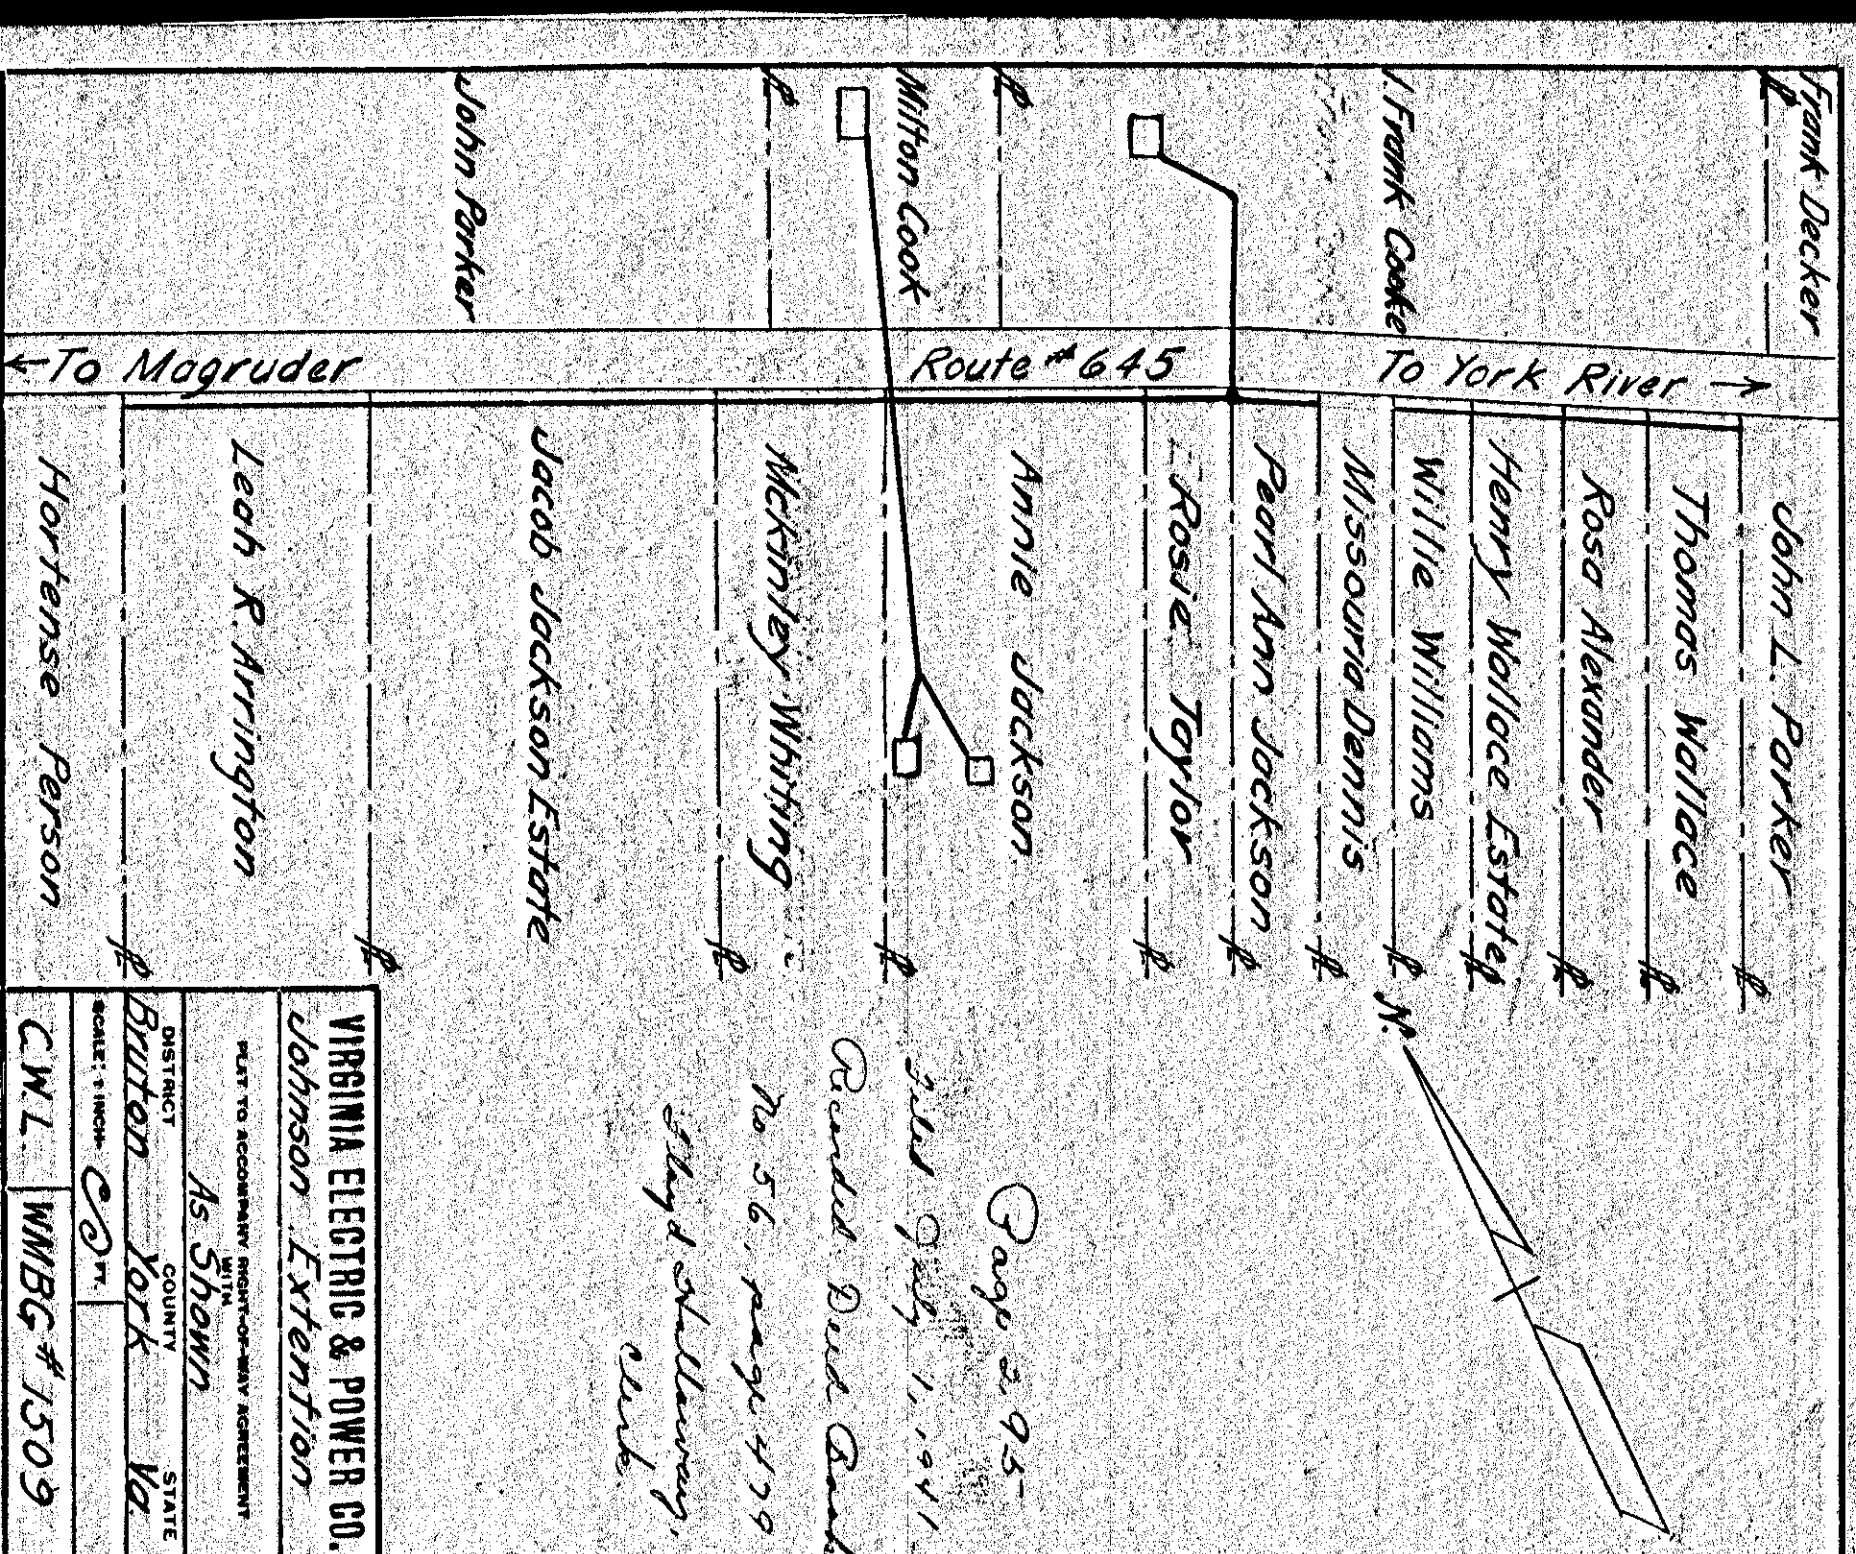 Frank Decker
J. Frank Cooke
Milton Cook
John Parker
← To Magruder
Route #645
To York River →
John L. Parker
Thomas Wallace
Rosa Alexander
Henry Wallace Estate
Willie Williams
Missouria Dennis
Pearl Ann Jackson
Rosie Taylor
Annie Jackson
Mckinley Whiting
Jacob Jackson Estate
Leah R. Arrington
Hortense Person
N.
Page 295
Filed July 1, 1941
Recorded Deed Book
No 56, page 479
Floyd Holloway,
Clerk.
VIRGINIA ELECTRIC & POWER CO.
Johnson Extention
PLAT TO ACCOMPANY RIGHT-OF-WAY AGREEMENT
WITH
As Shown
DISTRICT COUNTY STATE
Bruton York Va.
SCALE: 1 INCH= FT.
C.W.L. WMBG # 1509